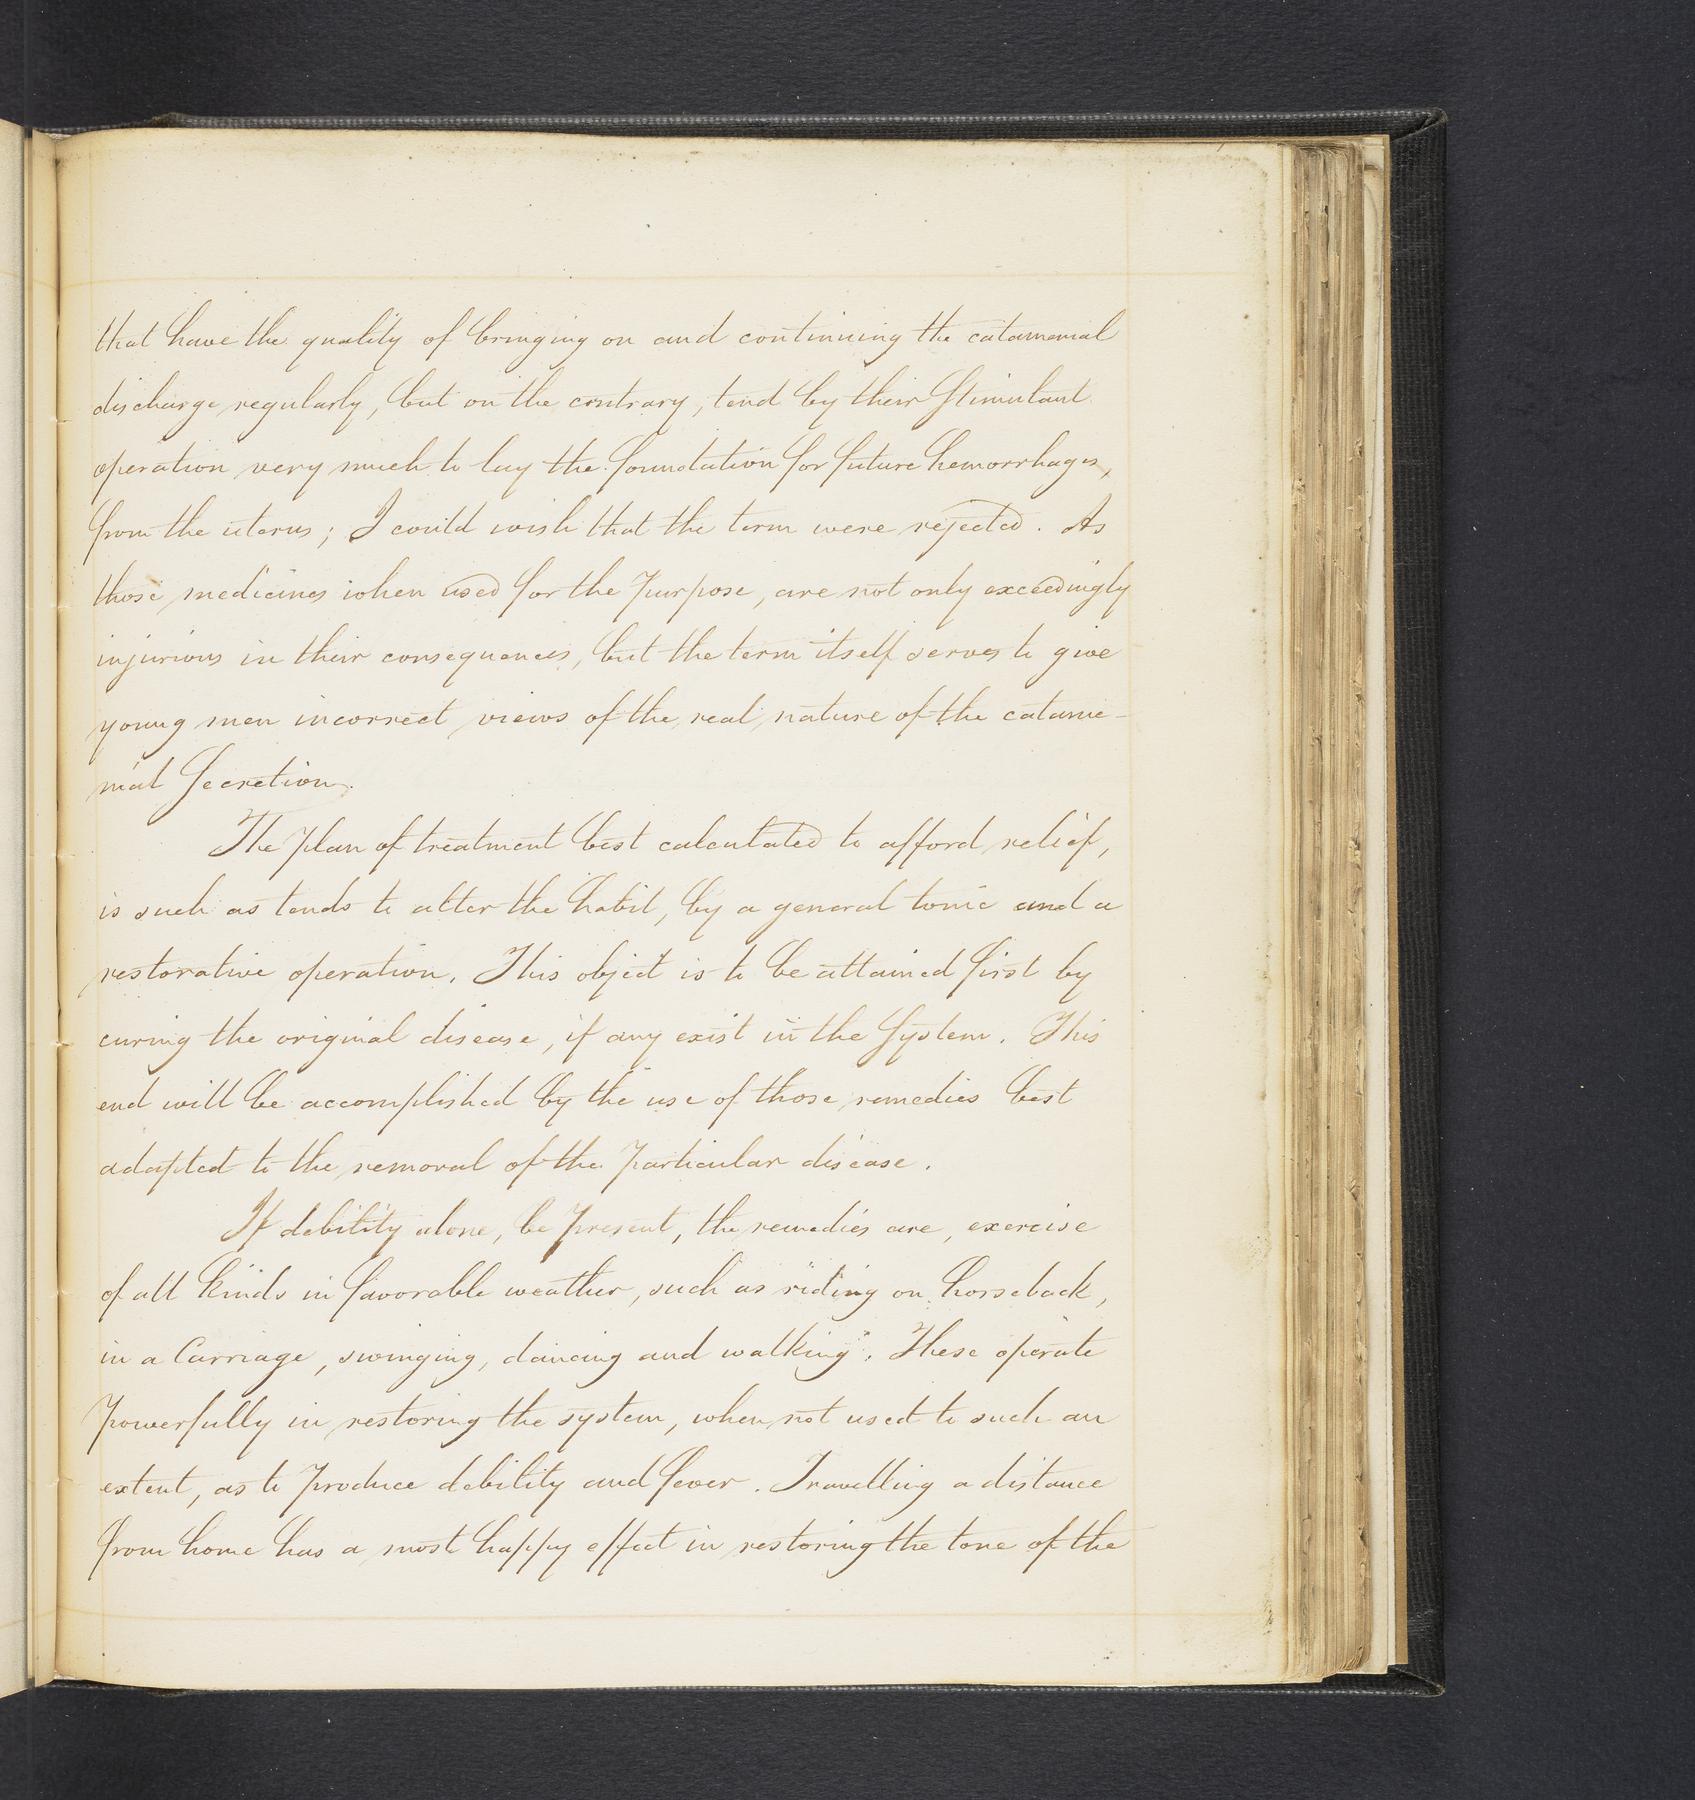 that have the quality of bringing on and continuing the catamenial
discharge regularly, but on the contrary, tend by their Stimulant
operation very much to lay the foundation for future hemorrhages,
from the uterus; I could wish that the term were rejected. As
those medicines when used for the Purpose, are not only exceedingly
injurious in their consequences, but the term itself serves to give
young men incorrect views of the real nature of the catame-
nial Secretion.
The plan of treatment best calculated to afford relief,
is such as tends to alter the habit, by a general tonic and a
restorative operation. This object is to be attained first by
curing the original disease, if any exist in the System. This
end will be accomplished by the use of those remedies best
adapted to the removal of the Particular disease.
If debility alone, be Present, the remedies are, exercise
of all kinds in favorable weather, such as riding on horseback,
in a Carriage, swinging, dancing and walking. These operate
Powerfully in restoring the system, when not used to such an
extent, as to Produce debility and fever. Travelling a distance
from home has a most happy effect in restoring the tone of the